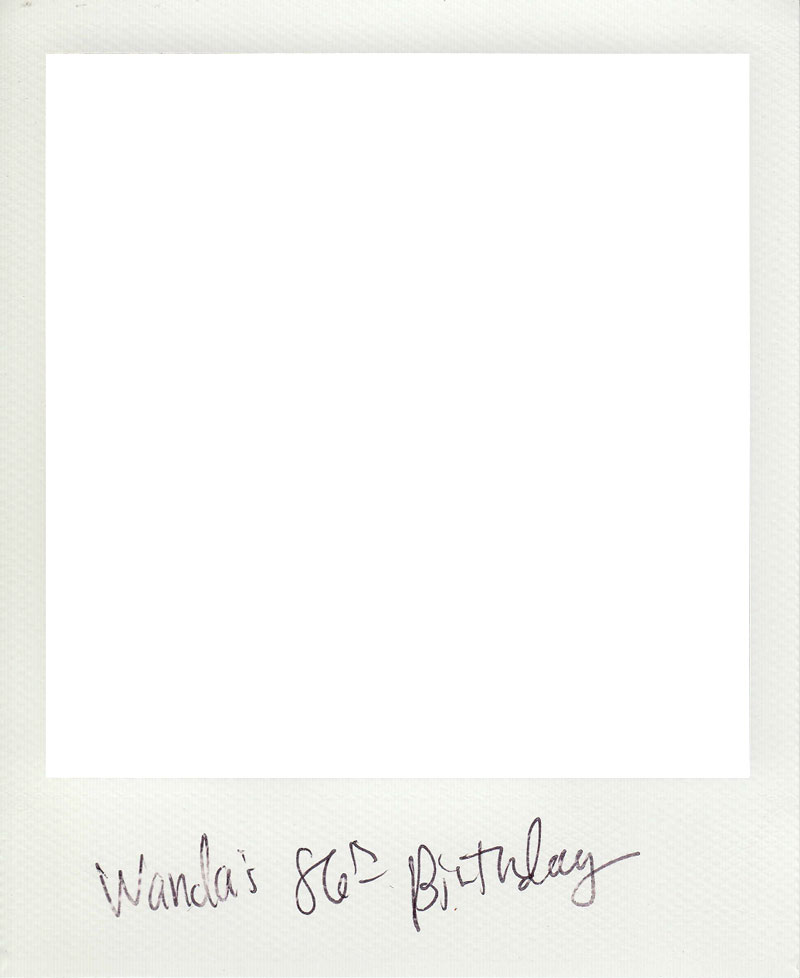 Wanda's 86th Birthday